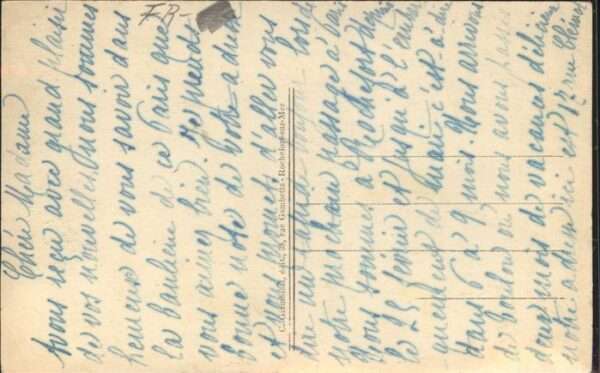 FR-
Chère Madame
Avons reçu avec grand plaisir
de vos nouvelles, nous sommes
heureux de vous savoir dans
la banlieue de ce Paris que
vous aimez bien. Je prends
bonne note de votre adresse
et nous promets d'aller vous
dire un
notre prochain passage à Paris
Nous sommes à Rochefort depuis
le 25 février et jusqu'à l'
de mari c'est-à-dire
dans 6 à 7 mois. Nous arrivons
de Toulon où nous avons passé
mois de vacances
notre adresse ici est rue
C. Garnaud, édit., 28, rue Gambetta - Rochefort-sur-Mer